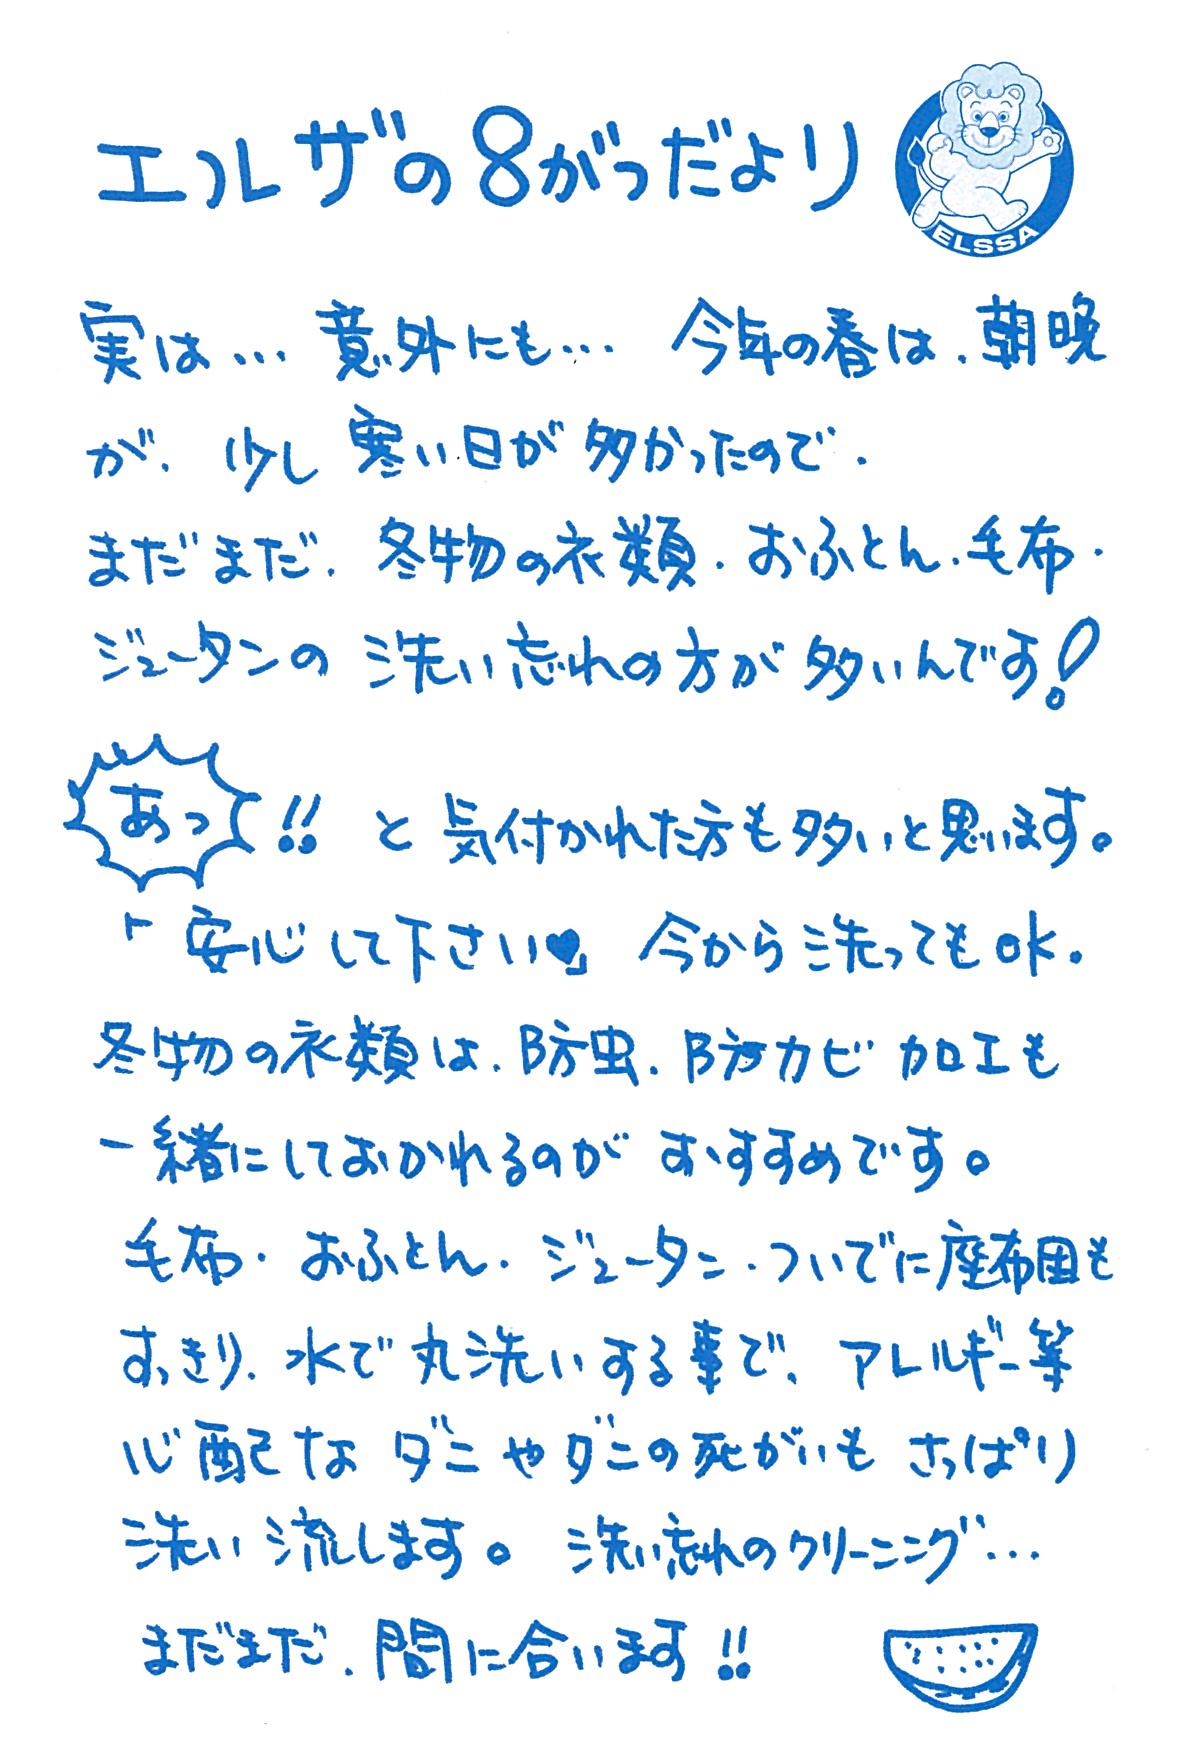 エルザの8がつだより
ELSSA
実は… 意外にも… 今年の春は、朝晩
が、少し 寒い日が 多かったので、
まだまだ、冬物の衣類・おふとん・毛布・
ジュータンの 洗い忘れの方が 多いんです!
あっ!! と 気付かれた方も多いと思います。
「安心して下さい♥」 今から洗ってもOK。
冬物の衣類は、防虫、防カビ 加工も
一緒にしておかれるのが おすすめです。
毛布・おふとん・ジュータン・ついでに座布団も
すっきり、水で丸洗いする事で、アレルギー等
心配な ダニやダニの死がいも さっぱり
洗い流します。 洗い忘れのクリーニング…
まだまだ、間に合います!!